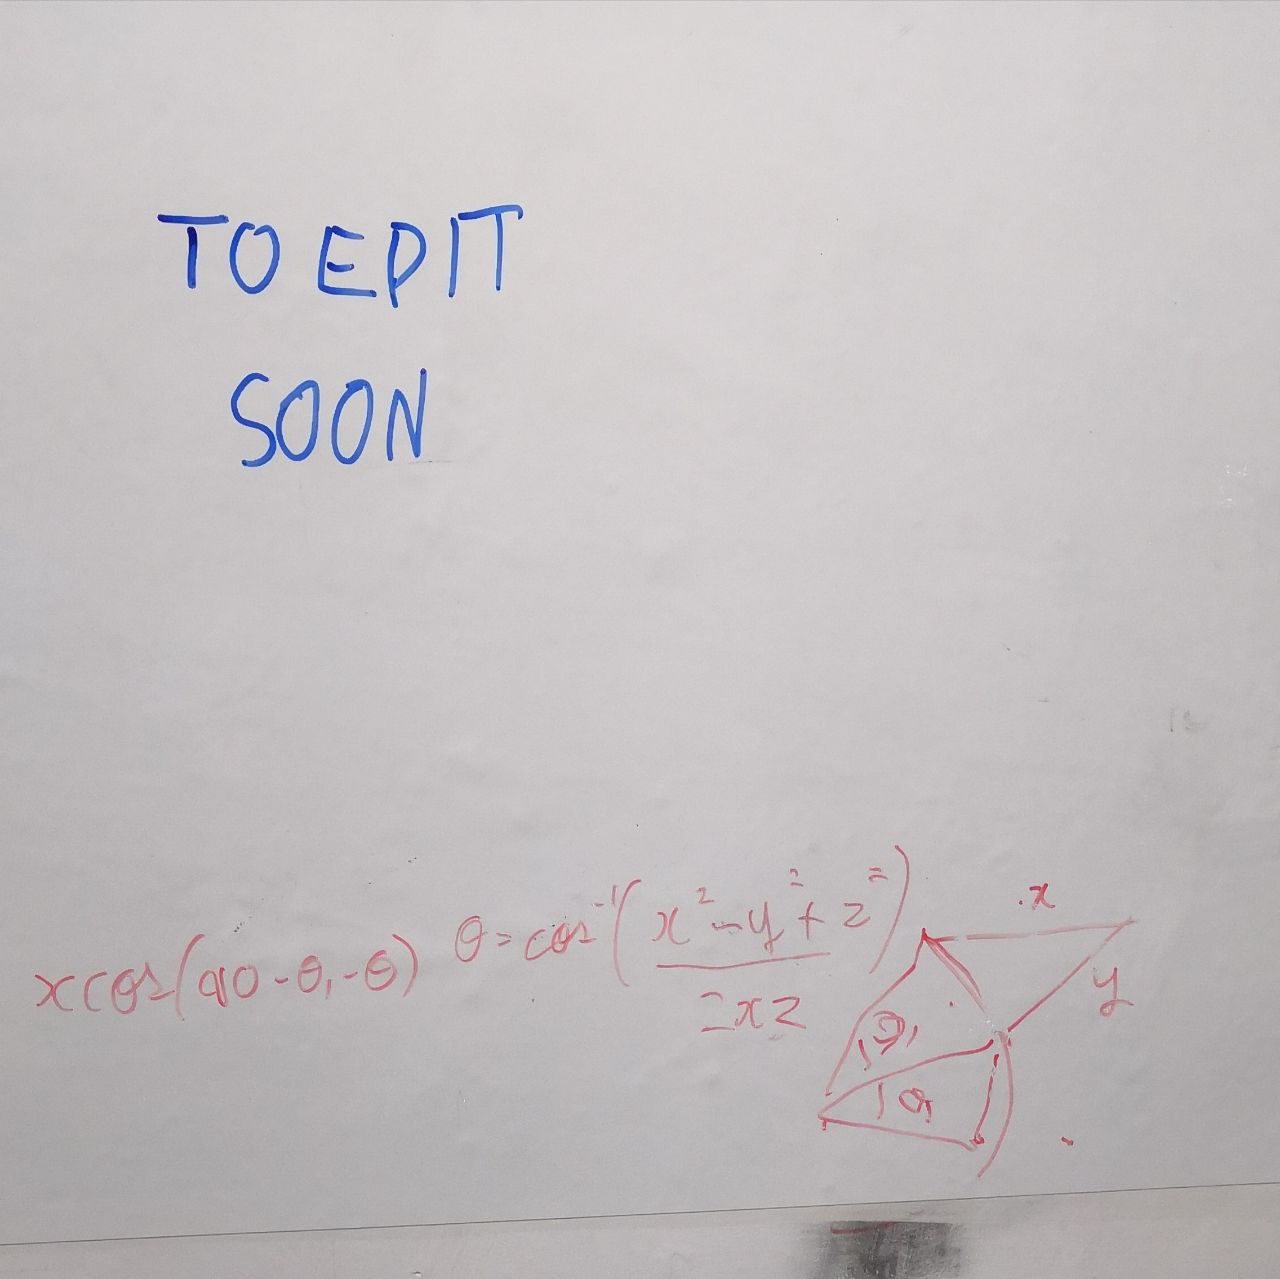 TO EDIT
SOON
xcos(90-θ₁-θ) θ=cos⁻¹(x²-y²+z²)
2xz
x
y
θ₁
θ₁